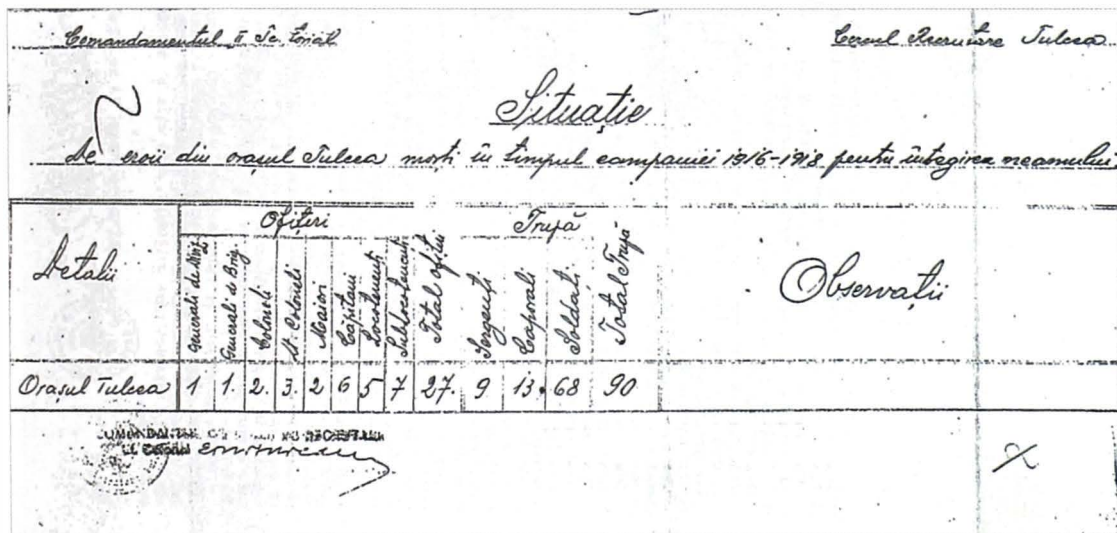 Comandamentul II Teritorial
Cercul Recrutare Tulcea
Situație
De eroii din orașul Tulcea morți în timpul campaniei 1916-1918 pentru întregirea neamului
Detalii
Ofițeri
Trupă
Observații
Generali de Diviz.
Generali de Brig.
Colonei
Lt. Colonei
Maiori
Căpitani
Locotenenți
Sublocotenenți
Total ofițeri
Sergenți
Caporali
Soldați
Total Trupă
Orașul Tulcea 1 1. 2. 3. 2 6 5 7 27. 9 13. 68 90
COMANDANTUL